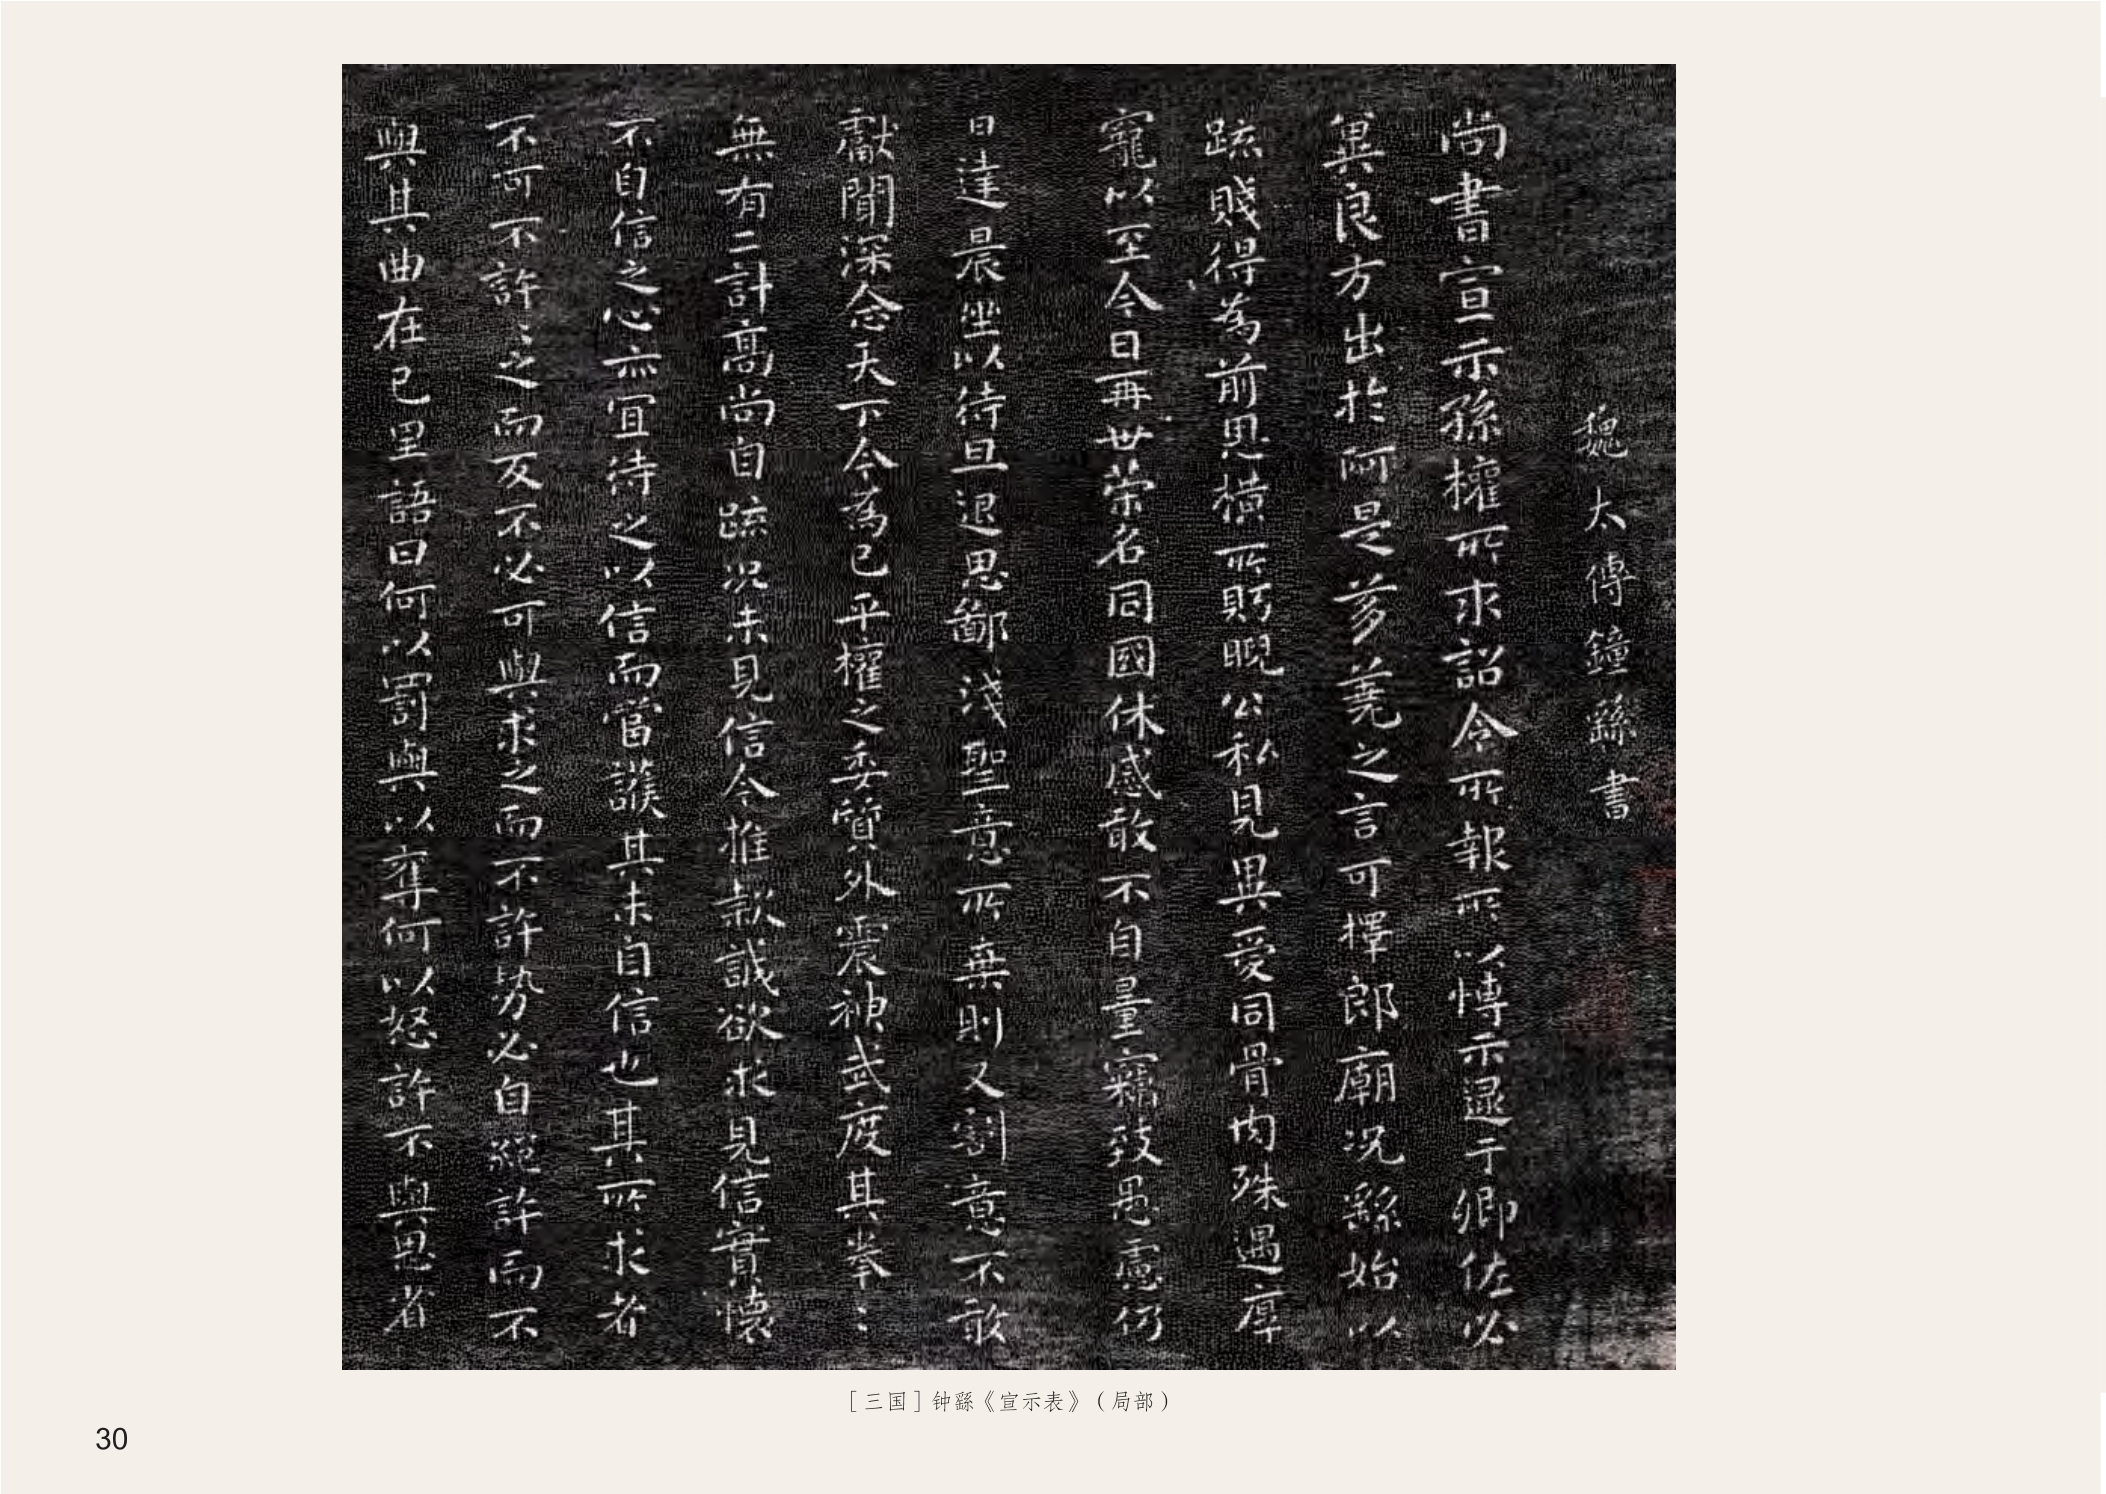 魏太傅鍾繇書
尚書宣示孫權所求詔令所報所以博示逯于卿佐必
兾良方出於阿是芻蕘之言可擇郎廟況繇始以
疏賤得為前恩橫所眄睨公私見異愛同骨肉殊遇厚
寵以至今日再世榮名同國休慼敢不自量竊致愚慮仍
日達晨坐以待旦退思鄙淺聖意所棄則又割意不敢
獻聞深念天下今為已平權之委質外震神武度其拳〻
無有二計高尚自疏況未見信今推款誠欲求見信實懷
不自信之心亦宜待之以信而當護其未自信也其所求者
不可不許〻之而反不必可與求之而不許勢必自絕許而不
與其曲在己里語曰何以罰與以奪何以怒許不與思省
［三国］钟繇《宣示表》（局部）
30